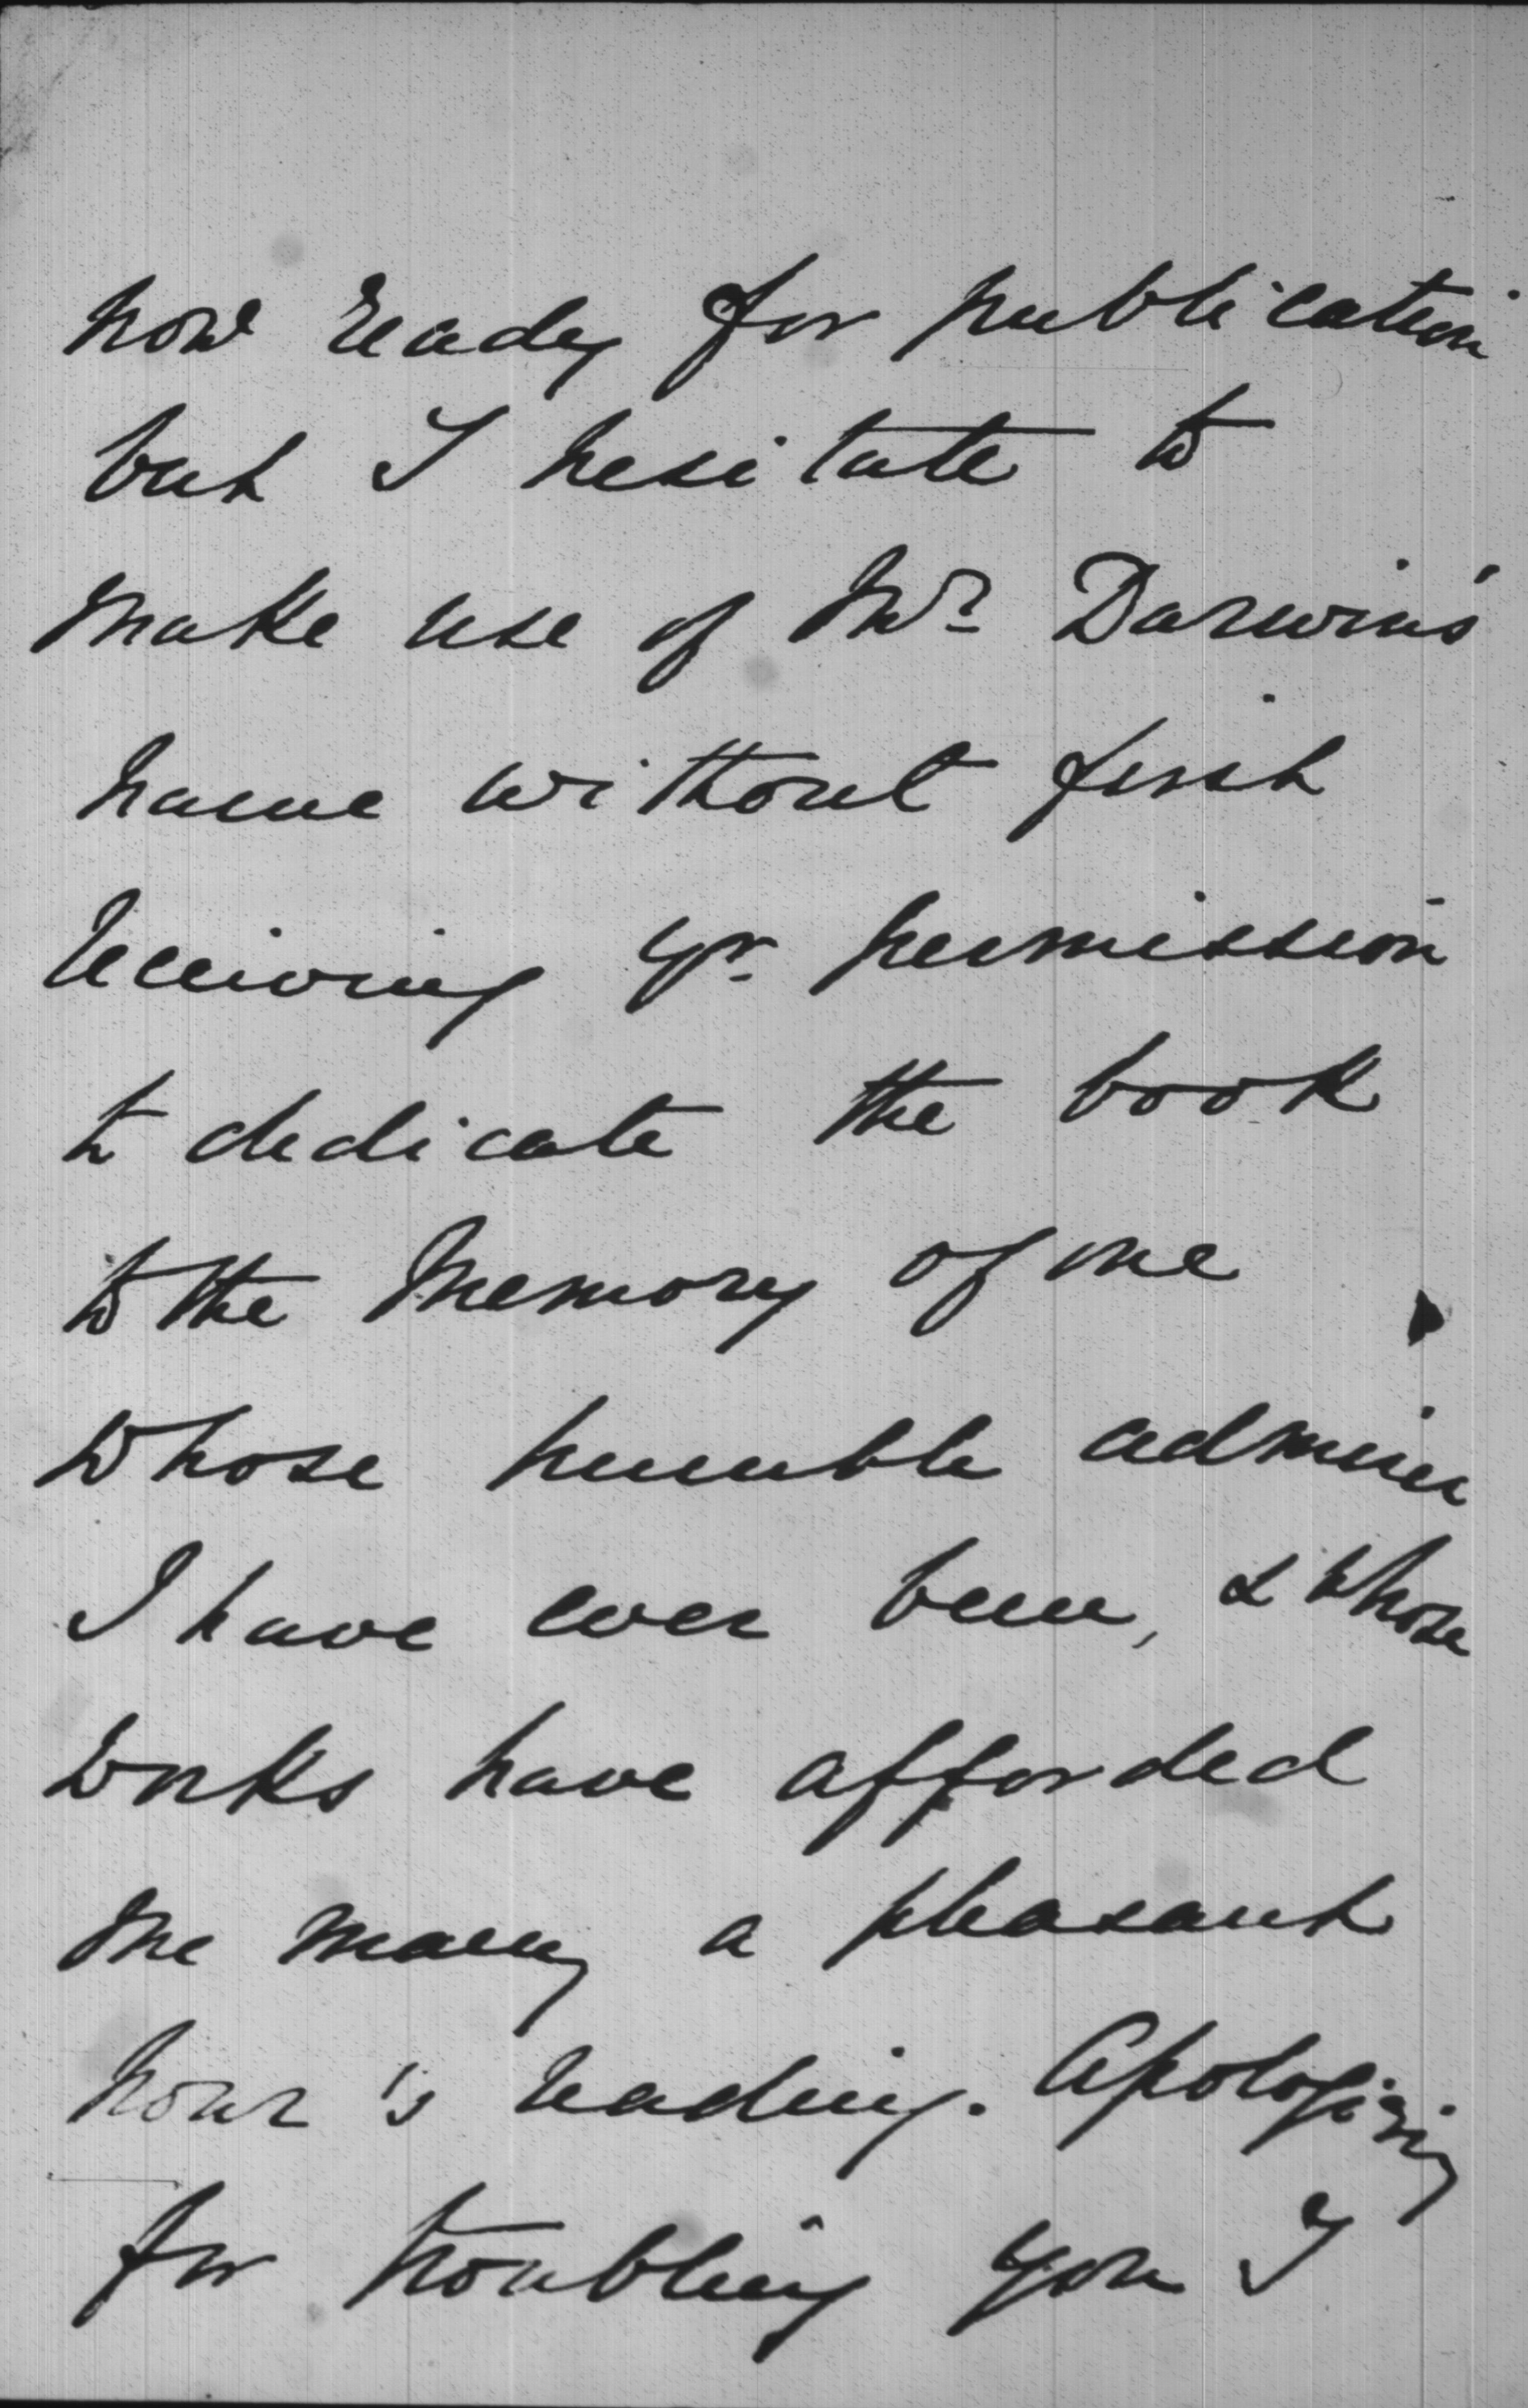 now ready for publication
but I hesitate to
make use of Mr. Darwin's
name without first
receiving yr. permission
to dedicate the book
to the Memory of one
whose humble admirer
I have ever been, & whose
works have afforded
me many a pleasant
hour's reading. Apologizing
for troubling you I